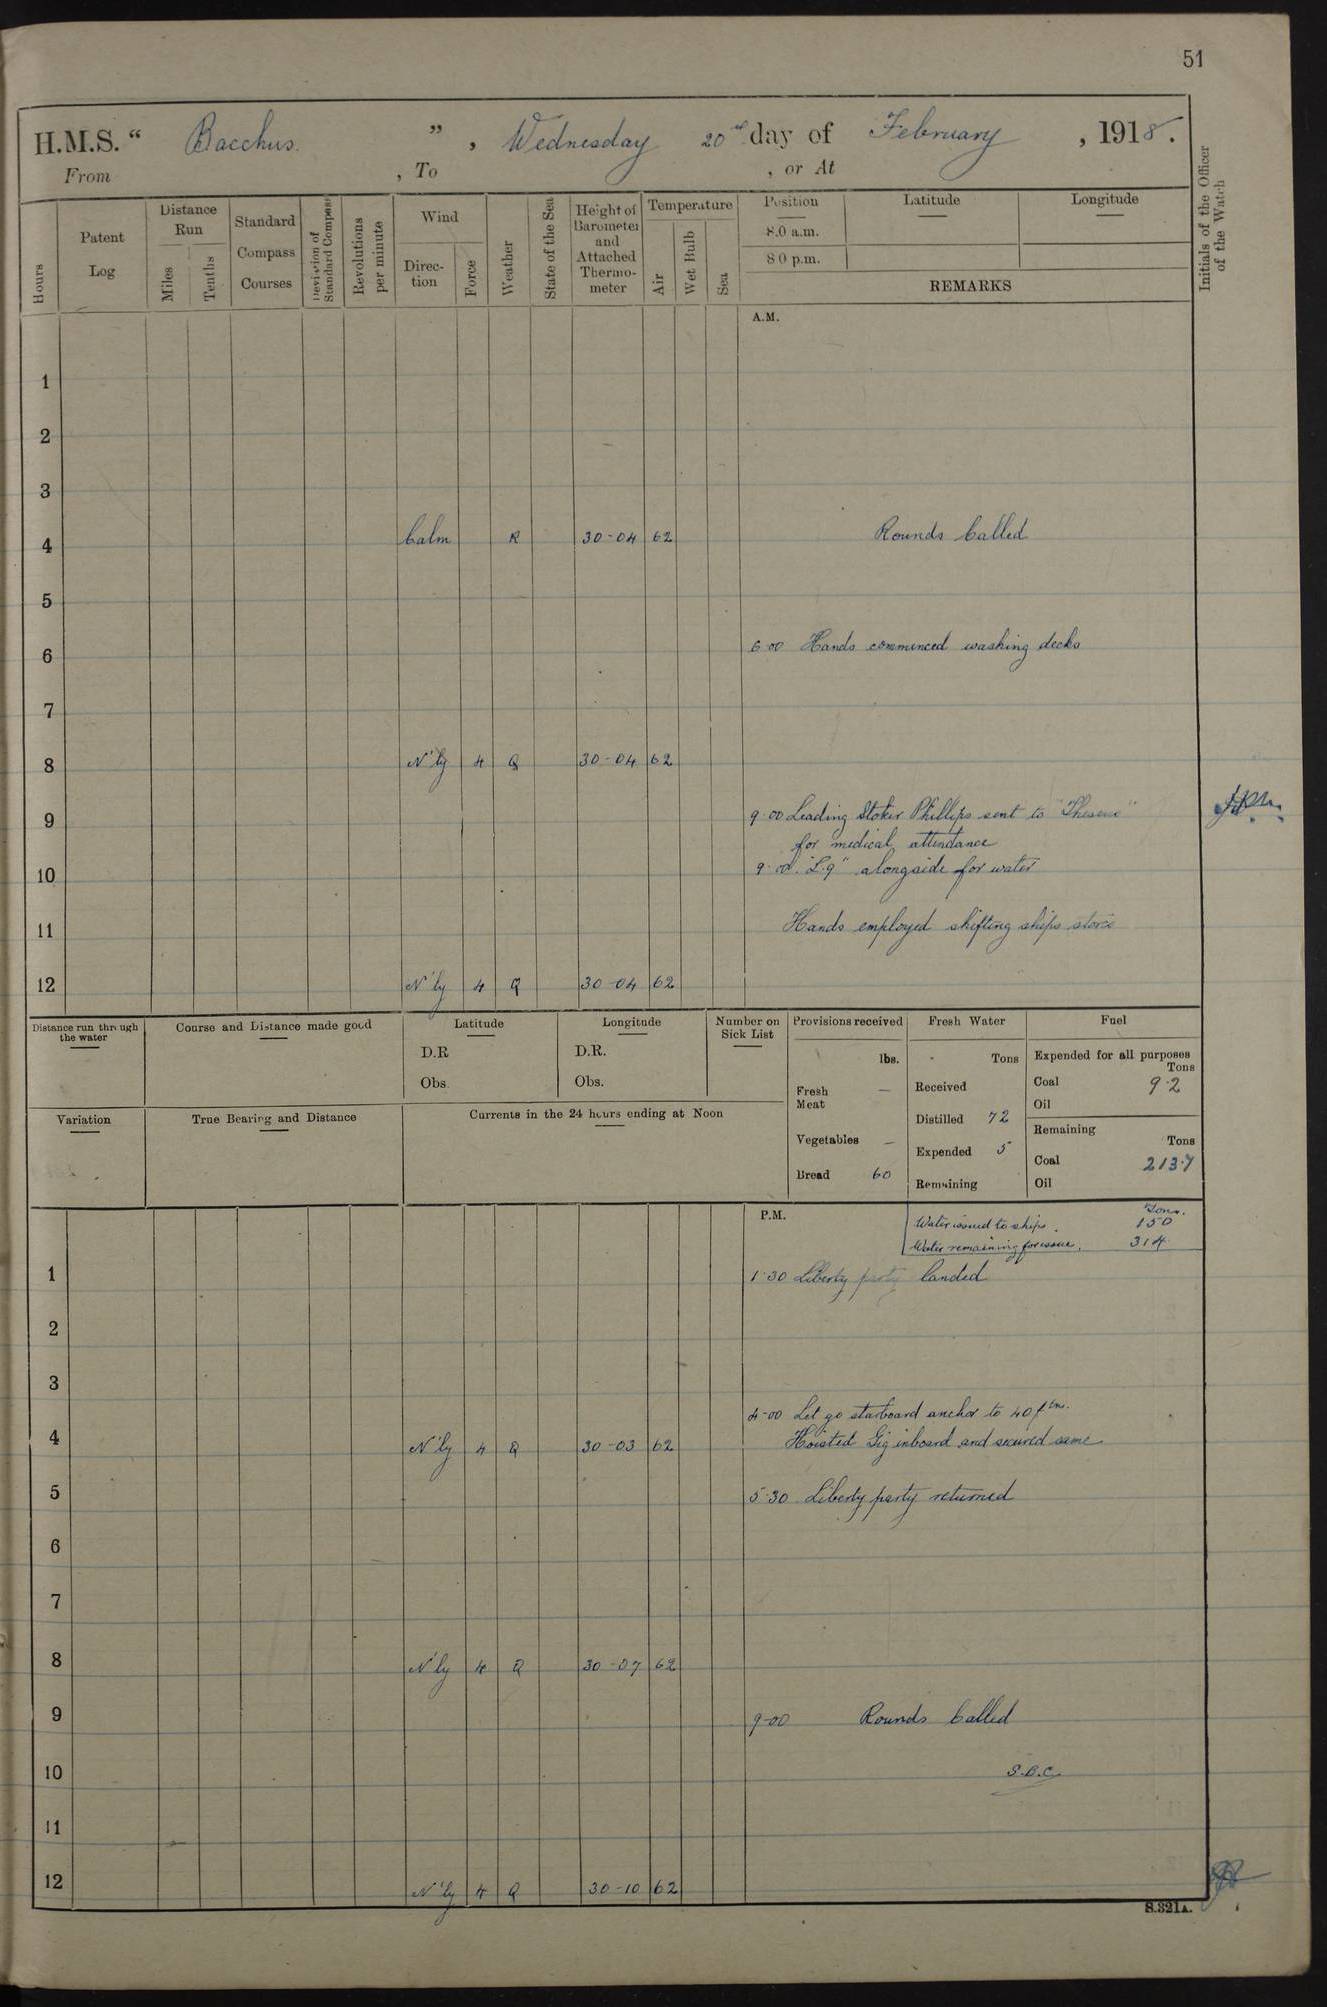 51
H.M.S. “ Bacchus ” , Wednesday 20th day of February , 1918.
From , To , or At
Hours
Patent Log
Distance Run
Miles
Tenths
Standard Compass Courses
Deviation of Standard Compass
Revolutions per minute
Wind
Direction
Force
Weather
State of the Sea
Height of Barometer and Attached Thermometer
Temperature
Air
Wet Bulb
Sea
Position
8.0 a.m.
8 0 p.m.
Latitude
Longitude
REMARKS
Initials of the Officer of the Watch
A.M.
1
2
3
4 Calm R 30-04 62 Rounds Called
5
6 6-00 Hands commenced washing decks
7
8 N'ly 4 Q 30-04 62
9 9-00 Leading Stoker Phillips sent to "Theseus"
for medical attendance
10 9-00 "L.9" alongside for water
11 Hands employed shifting ships stores
12 N'ly 4 Q 30-04 62
Distance run through the water
Course and Distance made good
Latitude
D.R
Obs.
Longitude
D.R.
Obs.
Number on Sick List
Provisions received
lbs.
Fresh Meat —
Vegetables —
Bread 60
Fresh Water
Tons
Received
Distilled 72
Expended 5
Remaining
Fuel
Expended for all purposes
Tons
Coal 9.2
Oil
Remaining
Tons
Coal 213.7
Oil
Variation
True Bearing and Distance
Currents in the 24 hours ending at Noon
P.M.
Tons.
Water issued to ships. 150
Water remaining for issue. 314
1 1-30 Liberty party landed
2
3
4-00 Let go starboard anchor to 40 fms.
4 N'ly 4 Q 30-03 62 Hoisted Gig inboard and secured same
5 5-30 Liberty party returned
6
7
8 N'ly 4 Q 30-07 62
9 9-00 Rounds Called
10 S.B.C.
11
12 N'ly 4 Q 30-10 62
S.321A.